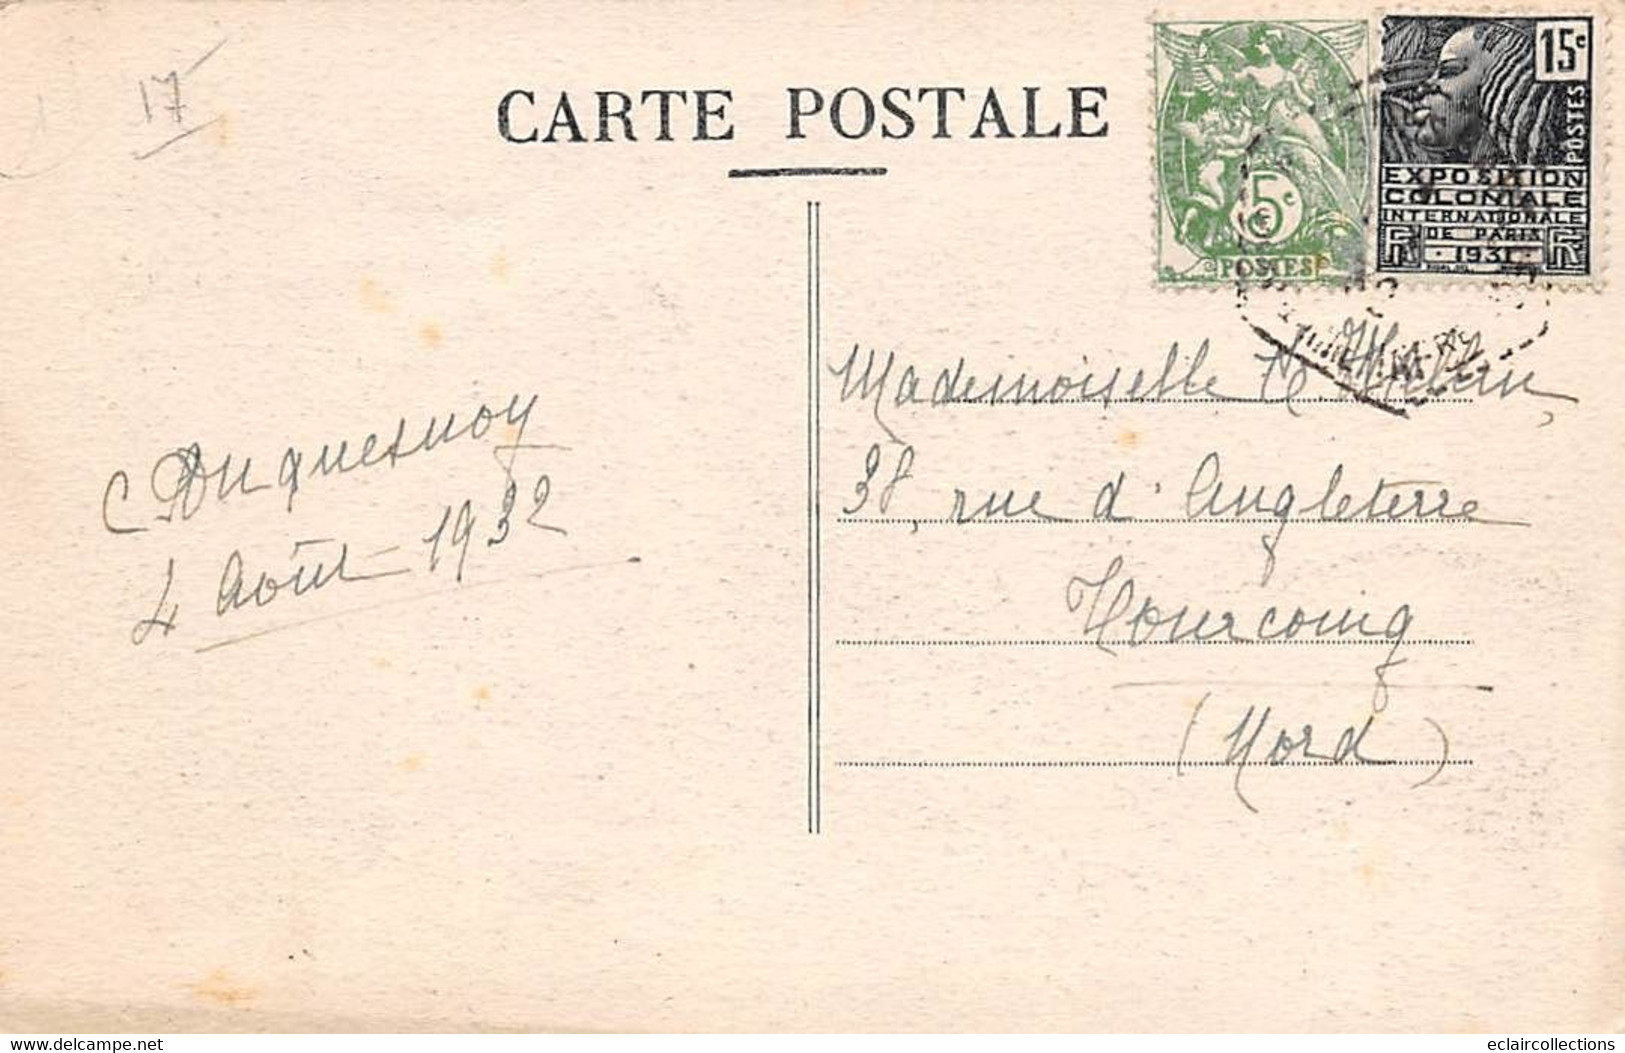 17
CARTE POSTALE
5c
POSTES
15c
POSTES
EXPOSITION
COLONIALE
INTERNATIONALE
DE PARIS
1931
RF RF
C Duquesnoy
4 Août 1932
Mademoiselle
38, rue d'Angleterre
Tourcoing
(Nord)
Delcampe.net
eclaircollections